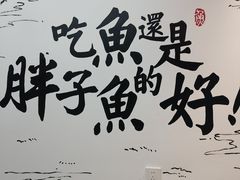 吃魚還是
胖子魚的好!